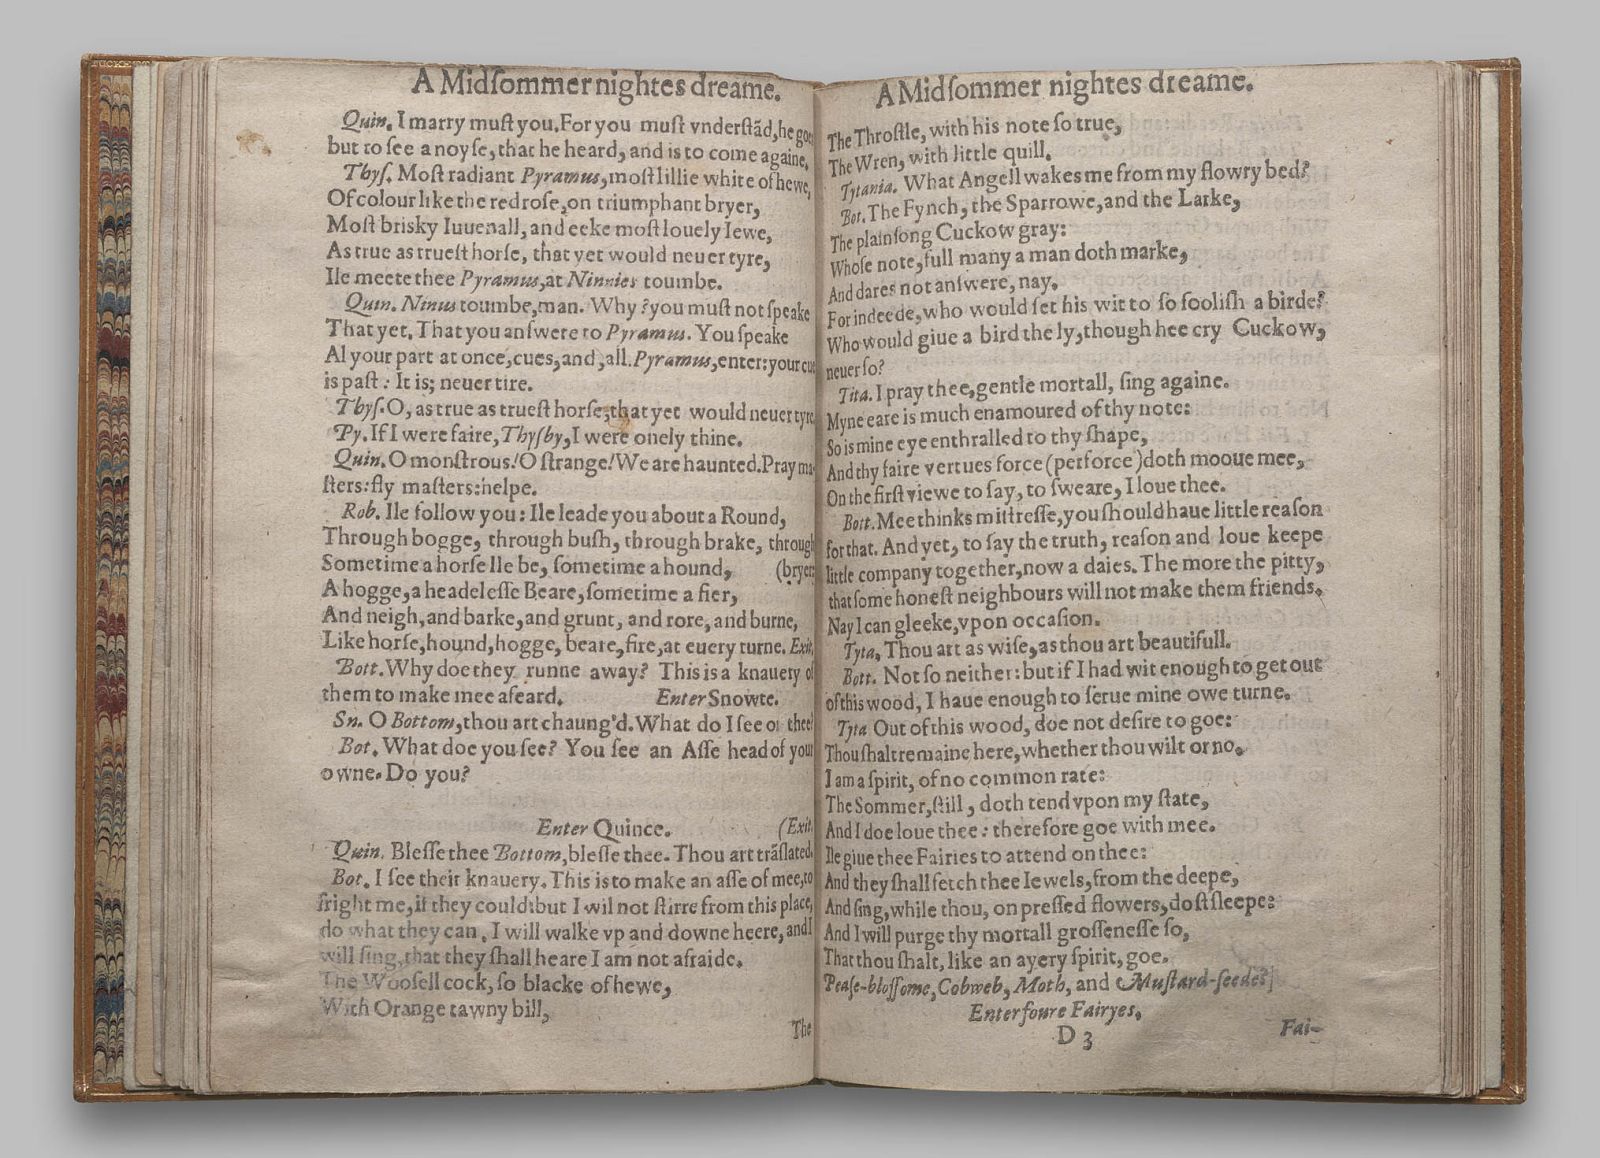 A Midſommer nightes dreame.
Quin. I marry muſt you. For you muſt vnderſtãd, he goes
but to ſee a noyſe, that he heard, and is to come againe.
Thyſ. Moſt radiant Pyramus, moſt lillie white of hewe,
Of colour like the red roſe, on triumphant bryer,
Moſt brisky Iuuenall, and eeke moſt louely Iewe,
As true as trueſt horſe, that yet would neuer tyre,
Ile meete thee Pyramus, at Ninnies toumbe.
Quin. Ninus toumbe, man. Why? you muſt not ſpeake
That yet. That you anſwere to Pyramus. You ſpeake
Al your part at once, cues, and, all. Pyramus, enter: your cue
is paſt: It is; neuer tire.
Thyſ. O, as true as trueſt horſe, that yet would neuer tyre.
Py. If I were faire, Thyſby, I were onely thine.
Quin. O monſtrous! O ſtrange! We are haunted. Pray ma-
ſters: fly maſters: helpe.
Rob. Ile follow you: Ile leade you about a Round,
Through bogge, through buſh, through brake, through
Sometime a horſe Ile be, ſometime a hound, (bryer:
A hogge, a headeleſſe Beare, ſometime a fier,
And neigh, and barke, and grunt, and rore, and burne,
Like horſe, hound, hogge, beare, fire, at euery turne. Exit.
Bott. Why doe they runne away? This is a knauery of
them to make mee afeard. Enter Snowte.
Sn. O Bottom, thou art chaung'd. What do I ſee on thee?
Bot. What doe you ſee? You ſee an Aſſe head of your
owne. Do you?
Enter Quince. (Exit.
Quin. Bleſſe thee Bottom, bleſſe thee. Thou art trãſlated.
Bot. I ſee their knauery. This is to make an aſſe of mee, to
fright me, if they could: but I wil not ſtirre from this place,
do what they can. I will walke vp and downe heere, and I
will ſing, that they ſhall heare I am not afraide.
The Wooſell cock, ſo blacke of hewe,
With Orange tawny bill,
The
A Midſommer nightes dreame.
The Throſtle, with his note ſo true,
The Wren, with little quill.
Tytania. What Angell wakes me from my flowry bed?
Bot. The Fynch, the Sparrowe, and the Larke,
The plainſong Cuckow gray:
Whoſe note, full many a man doth marke,
And dares not anſwere, nay.
For indeede, who would ſet his wit to ſo fooliſh a birde?
Who would giue a bird the ly, though hee cry Cuckow,
neuer ſo?
Tita. I pray thee, gentle mortall, ſing againe.
Myne eare is much enamoured of thy note:
So is mine eye enthralled to thy ſhape,
And thy faire vertues force (perforce) doth mooue mee,
On the firſt viewe to ſay, to ſweare, I loue thee.
Bott. Mee thinks miſtreſſe, you ſhould haue little reaſon
for that. And yet, to ſay the truth, reaſon and loue keepe
little company together, now a daies. The more the pitty,
that ſome honeſt neighbours will not make them friends.
Nay I can gleeke, vpon occaſion.
Tyta. Thou art as wiſe, as thou art beautifull.
Bott. Not ſo neither: but if I had wit enough to get out
of this wood, I haue enough to ſerue mine owe turne.
Tyta Out of this wood, doe not deſire to goe:
Thou ſhalt remaine here, whether thou wilt or no.
I am a ſpirit, of no common rate:
The Sommer, ſtill, doth tend vpon my ſtate,
And I doe loue thee: therefore goe with mee.
Ile giue thee Fairies to attend on thee:
And they ſhall fetch thee Iewels, from the deepe,
And ſing, while thou, on preſſed flowers, doſt ſleepe:
And I will purge thy mortall groſſeneſſe ſo,
That thou ſhalt, like an ayery ſpirit, goe.
Peaſe-bloſſome, Cobweb, Moth, and Muſtard-ſeede?
Enter foure Fairyes.
D 3 Fai-